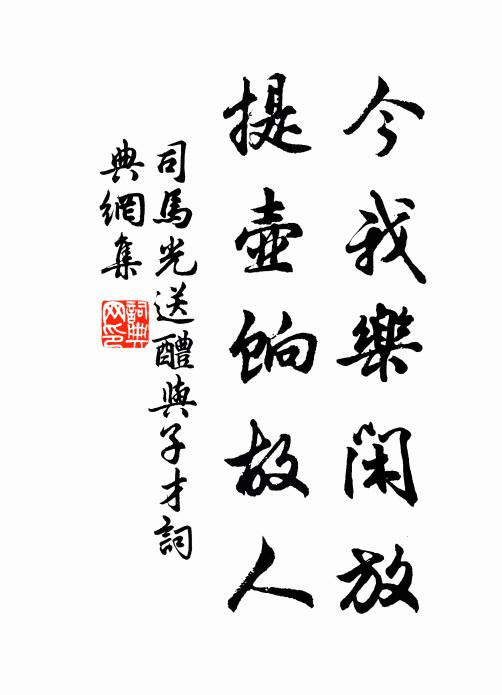 今我樂閑放
提壺餉故人
司馬光送醴與子才詞
典網集
詞典網印